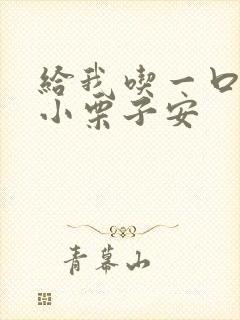 給我喫一口
小栗子安
青幕山